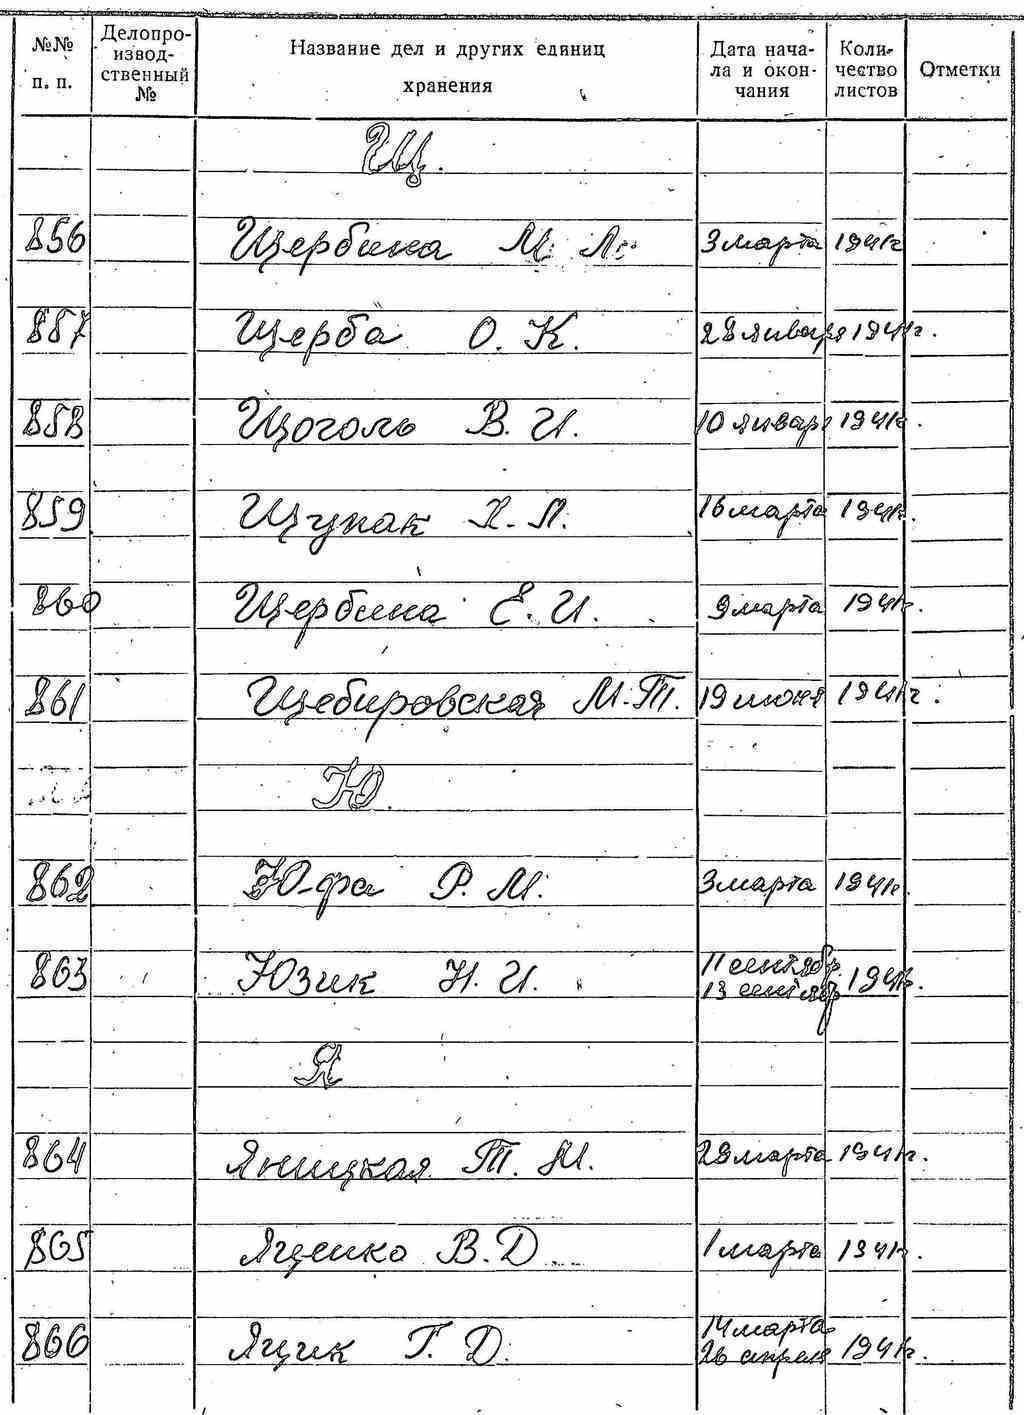 №№ п. п. Делопроизводственный № Название дел и других единиц хранения Дата начала и окончания Количество листов Отметки
Щ.
856 Щербина М. Л. 3 марта 1941г
857 Щерба О. К. 28 января 1941г.
858 Щоголь В. И. 10 январ 1941г.
859 Щупак Х. Л. 16 марта 1941г.
860 Щербина Е. И. 9 марта 1941г.
861 Щебировская М. Т. 19 июня 1941г.
Ю.
862 Юфа Р. М. 3 марта 1941г.
863 Юзик Н. И. 11 сентябр. 13 сентябр 1941г.
Я
864 Яницкая Т. М. 28 марта 1941г.
865 Яценко В. Д. 1 марта 1941г.
866 Яцик Г. Д. 14 марта 26 апреля 1941г.